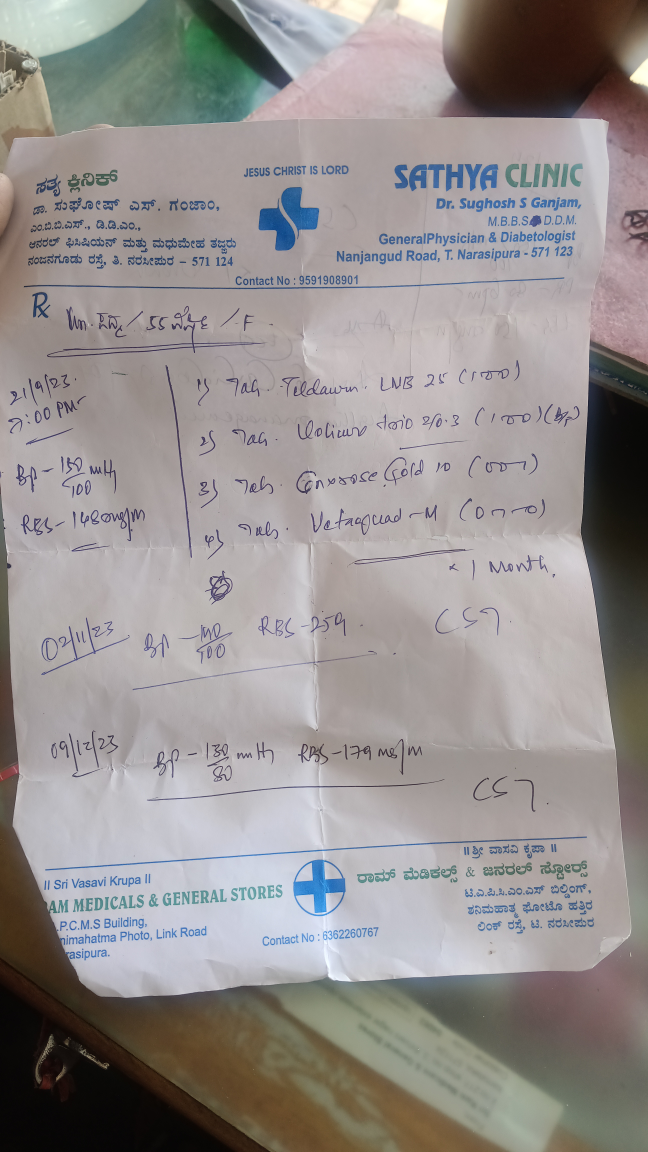 ಸತ್ಯ ಕ್ಲಿನಿಕ್
ಡಾ. ಸುಘೋಷ್ ಎಸ್. ಗಂಜಾಂ,
ಎಂ.ಬಿ.ಬಿ.ಎಸ್., ಡಿ.ಡಿ.ಎಂ.,
ಜನರಲ್ ಫಿಸಿಷಿಯನ್ ಮತ್ತು ಮಧುಮೇಹ ತಜ್ಞರು
ನಂಜನಗೂಡು ರಸ್ತೆ, ತಿ. ನರಸೀಪುರ - 571 124
JESUS CHRIST IS LORD
SATHYA CLINIC
Dr. Sughosh S Ganjam,
M.B.B.S D.D.M.
GeneralPhysician & Diabetologist
Nanjangud Road, T. Narasipura - 571 123
Contact No : 9591908901
Rx
/ 55 / F
21/9/23.
7:00 PM
BP - 150/100 mmHg
RBS - 148 mg/m
1) Tab. LNB 25 (1-0-0)
2) Tab. trio 2/0.3 (1-0-0)
3) Tab. Gold 10 (0-0-1)
4) Tab. -M
× 1 Month.
02/11/23 BP - 140/100 RBS - 259. CST.
09/12/23 BP - 130/80 mmHg RBS - 179 mg/m
CST.
II Sri Vasavi Krupa II
AM MEDICALS & GENERAL STORES
.P.C.M.S Building,
nimahatma Photo, Link Road
rasipura.
Contact No : 6362260767
II ಶ್ರೀ ವಾಸವಿ ಕೃಪಾ II
ರಾಮ್ ಮೆಡಿಕಲ್ಸ್ & ಜನರಲ್ ಸ್ಟೋರ್ಸ್
ಟಿ.ಎ.ಪಿ.ಸಿ.ಎಂ.ಎಸ್ ಬಿಲ್ಡಿಂಗ್,
ಶನಿಮಹಾತ್ಮ ಫೋಟೊ ಹತ್ತಿರ
ಲಿಂಕ್ ರಸ್ತೆ, ಟಿ. ನರಸೀಪುರ